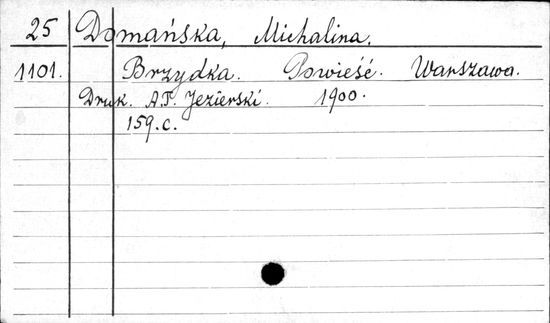 25 Domańska, Michalina.
1101. Brzydka. Powieść. Warszawa.
Druk. A.T. Jezierski. 1900.
159.c.